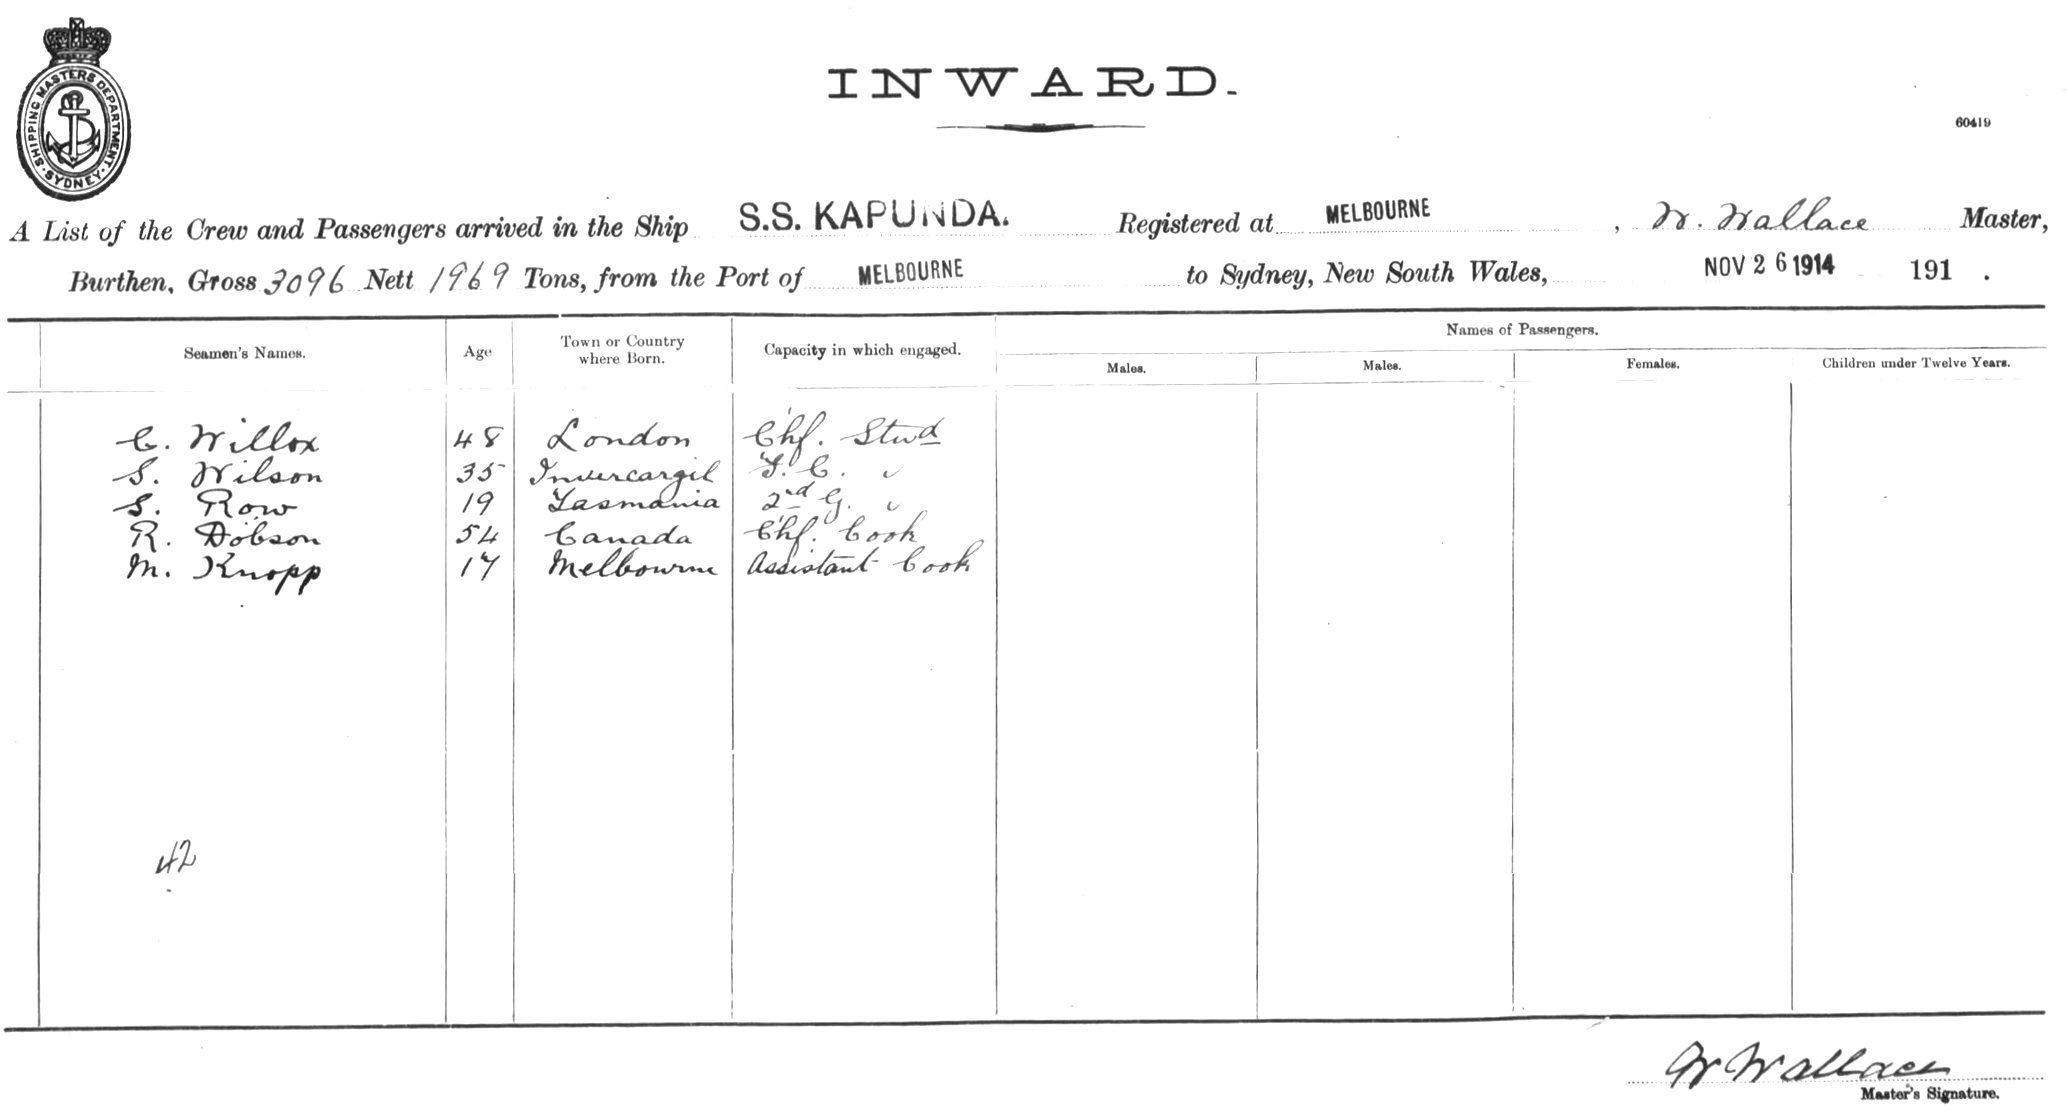 SHIPPING MASTERS DEPARTMENT
SYDNEY
INWARD.
60419
A List of the Crew and Passengers arrived in the Ship S.S. KAPUNDA. Registered at MELBOURNE, W. Wallace Master,
Burthen, Gross 3096 Nett 1969 Tons, from the Port of MELBOURNE to Sydney, New South Wales, NOV 26 1914 191 .
Names of Passengers.
Seamen's Names. Age Town or Country where Born. Capacity in which engaged. Males. Males. Females. Children under Twelve Years.
C. Willox 48 London Chf. Stwd
S. Wilson 35 Invercargil F. C. "
S. Row 19 Tasmania 2nd G. "
R. Dobson 54 Canada Chf. Cook
M. Knopp 17 Melbourne Assistant Cook
42
W Wallace
Master's Signature.